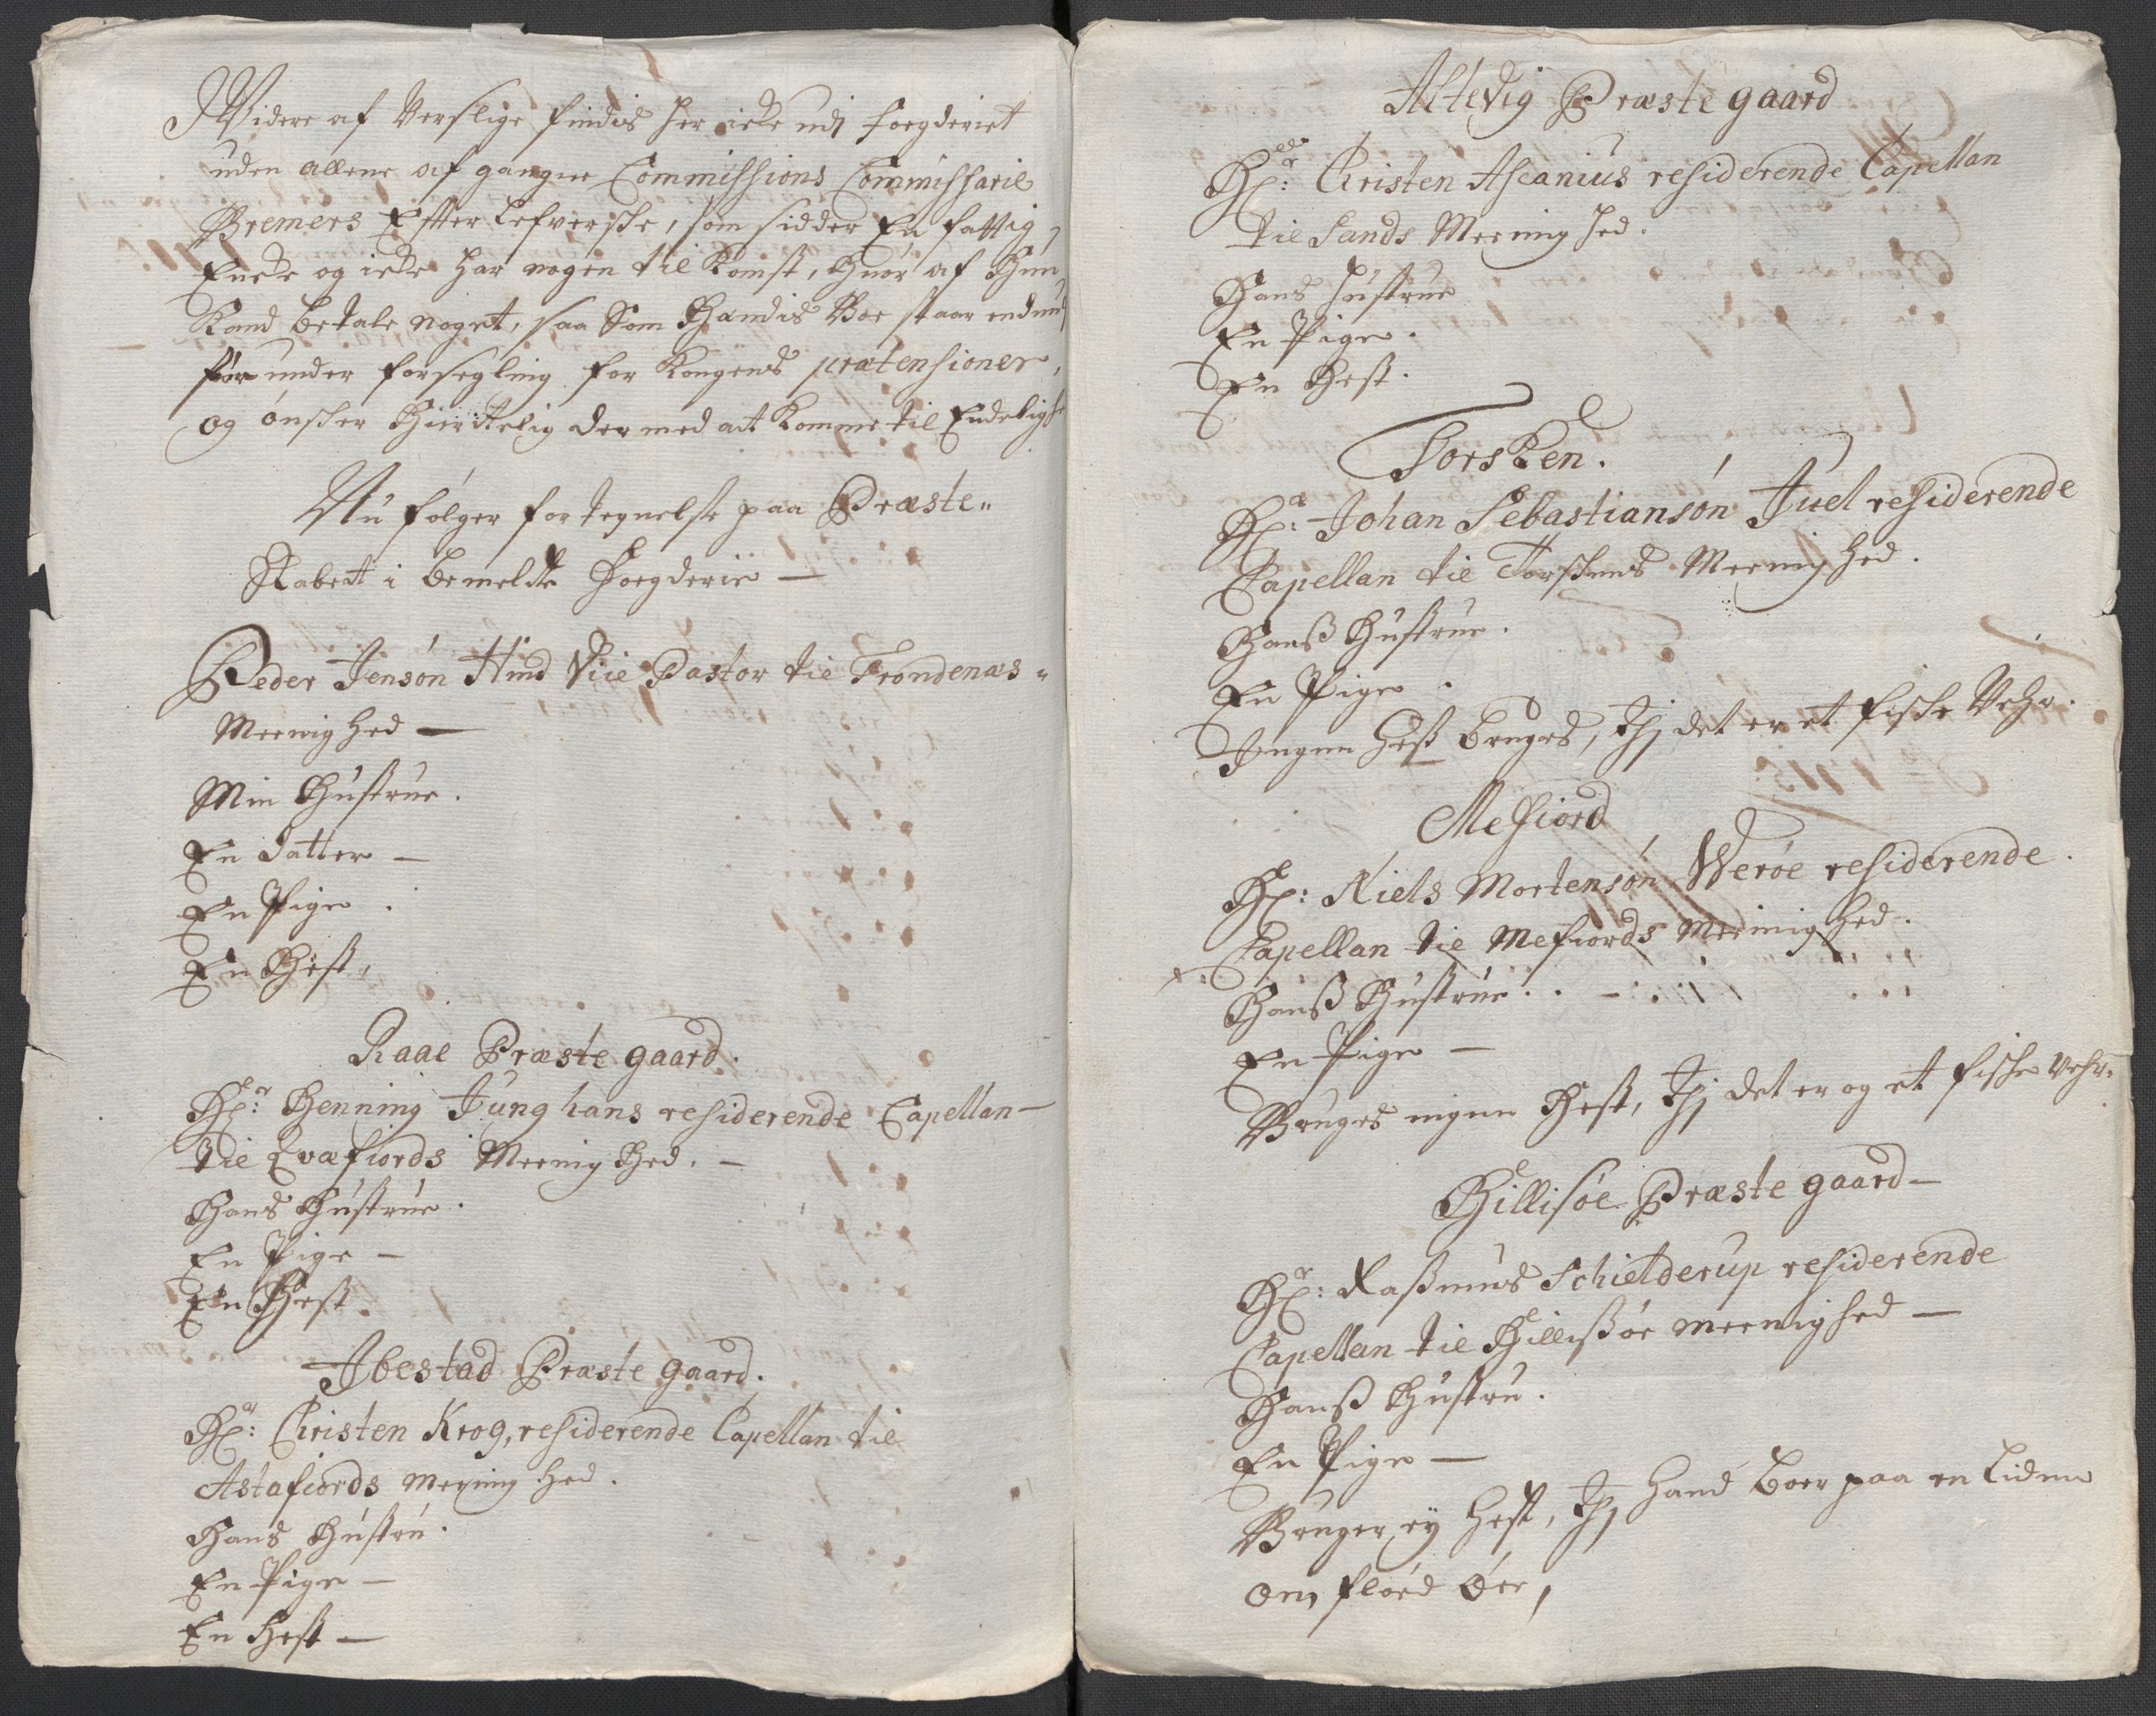 Widere af Verslige findis her icke udj foegderiet
uden allene afgangne Commissions Commissarie
Bremers Effterlefversche, som sidder En fattig
Encke og icke har nogen til Komst, huor af Hun
Kand betale noget, saa Som Handis Boe staar endnu
for under forsegling for Kongens prætensioner,
og ønsker Hiertelig dermed at Komme til Endelighe
Nu følger fortegnelse paa Præste"
Skabet i bemeldte Foegderie —
Peder Jensøn Hind Vice Pastor til Trondenæs"
Meenighed —
Min Hustrue.
En datter —
En Pige.
En Hest,
Raae Præstegaard.
Hr: Henning Junghans residerende Capellan —
til Qvæfiords Meenighed. —
Hans Hustrue.
En Pige —
En Hest.
Ibestad Præstegaard.
Hr: Christen Krog, residerende Capellan til
Astafiords Meenighed.
Hans Hustru.
En Pige —
En Hest —
Altevig Præstegaard
Hr: Christen Ascanius residerende Capellan
til Sands Meenighed.
Hans Hustrue
En Pige.
En Hest.
Torsken.
Hr: Johan Sebastiansøn Juel residerende
Capellan til Torskens Meenighed.
Hanß Hustrue.
En Pige.
Ingen Hest bruges, Thj det er et fiske Vehr.
Mefiord
Hr: Niels Mortensøn Werøe residerende.
Capellan til Mefiords Meenighed.
Hanß Hustrue.
En Pige —
Bruges ingen Hest, Thj det er og et fiske Vehr.
Hillisøe Præstegaard —
Hr: Raßmus Schielderup residerende
Capellan til Hillißøe Meenighed —
Hanß Hustru.
En Pige —
Bruger ej Hest, Thj Hand boer paa en liden
om fløed Øe,